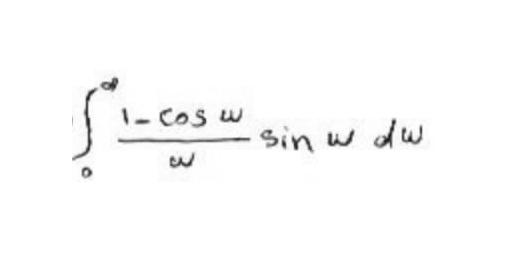 ∫₀^∞ (1 - cos w)/w sin w dw